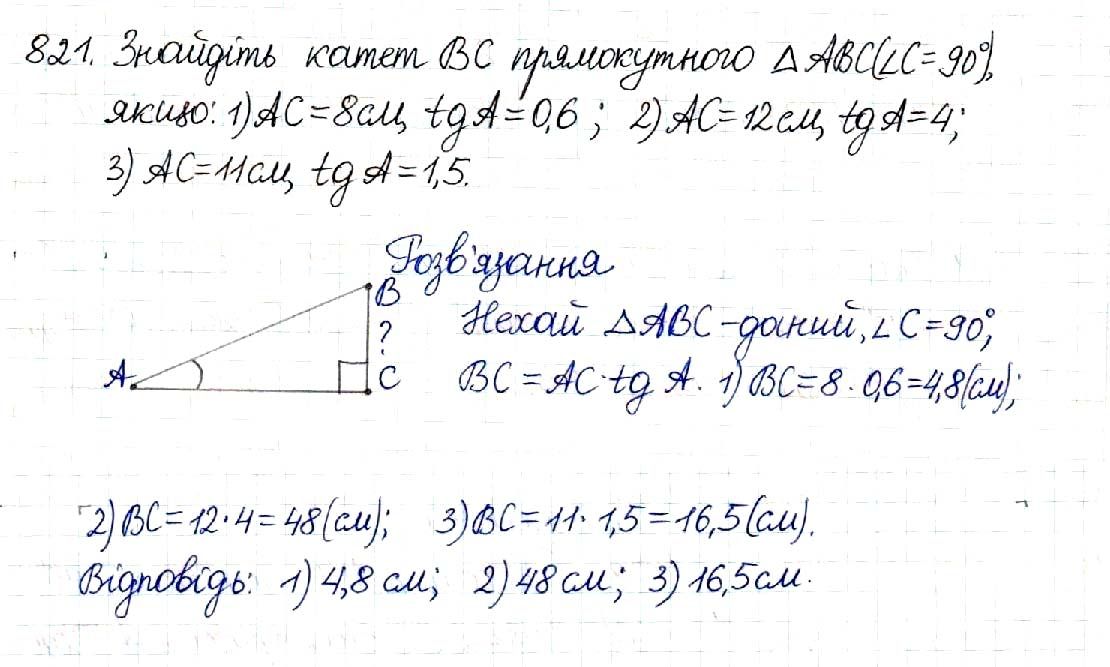 821. Знайдіть катет BC прямокутного △ABC(∠C=90°),
якщо: 1) AC=8см, tgA=0,6; 2) AC=12см, tgA=4;
3) AC=11см, tgA=1,5.
Розв'язання
B
Нехай △ABC-даний, ∠C=90°,
?
A
C
BC=AC·tg A. 1) BC=8·0,6=4,8(см);
2) BC=12·4=48(см); 3) BC=11·1,5=16,5(см).
Відповідь: 1) 4,8 см; 2) 48 см; 3) 16,5 см.